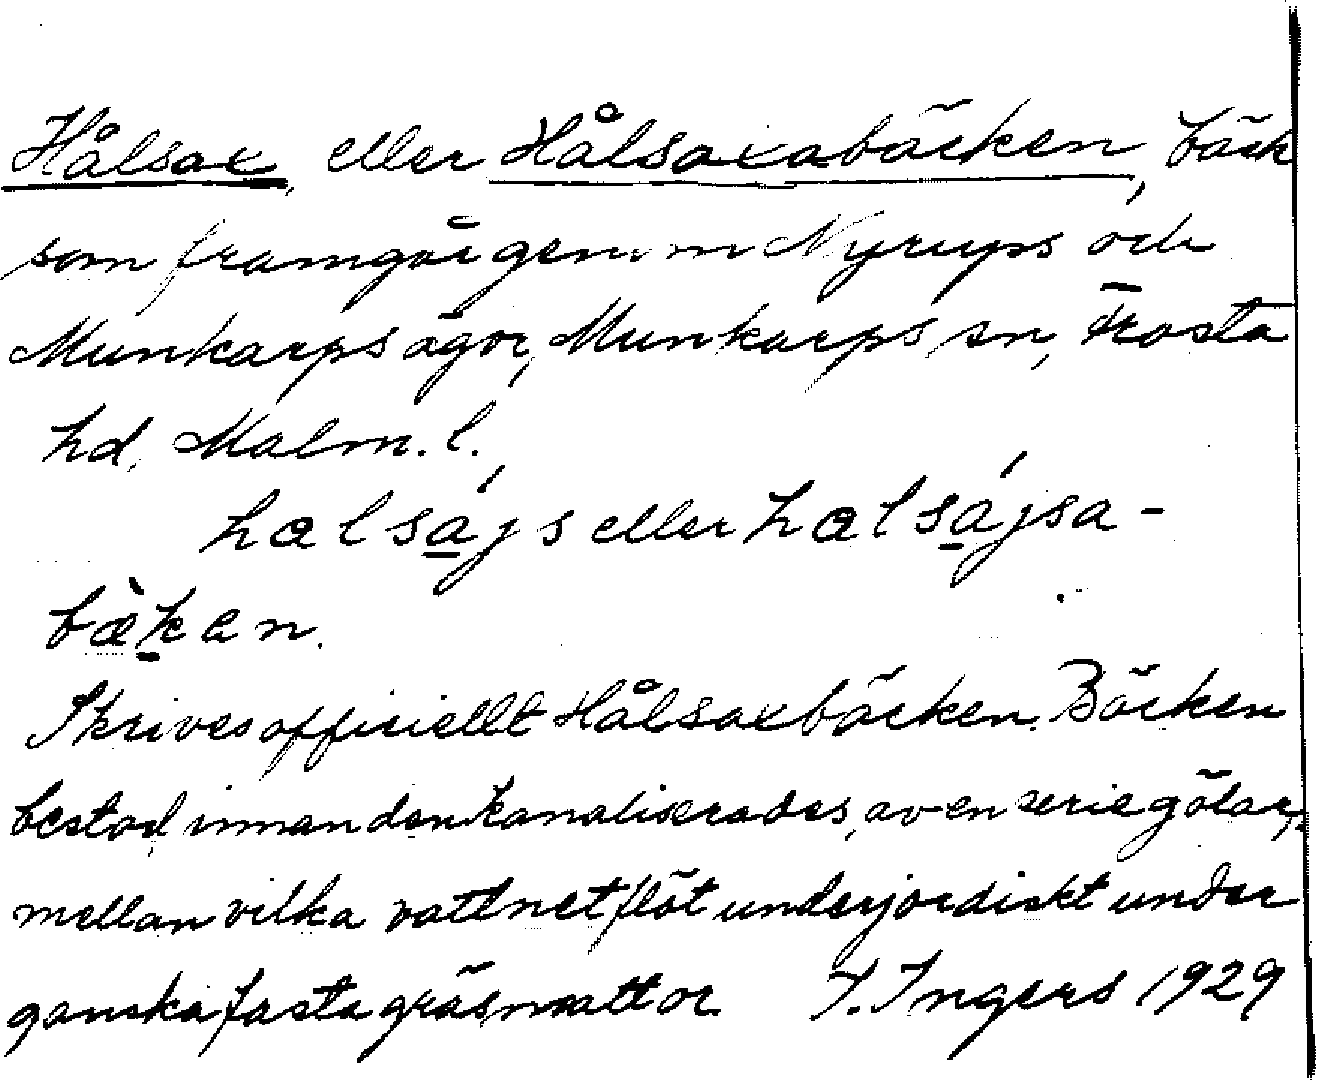 Hålsax, eller Hålsaxabäcken, bäck
som framgår genom Nyrups och
Munkarps ägor, Munkarps sn, Frosta
hd, Malm. l.
halsájs eller halsájsa-
bækan.
Skrives officiellt Hålsaxbäcken. Bäcken
bestod, innan den kanaliserades, av en serie gölar,
mellan vilka vattnet flöt underjordiskt under
ganska fasta gräsmattor I. Ingers 1929